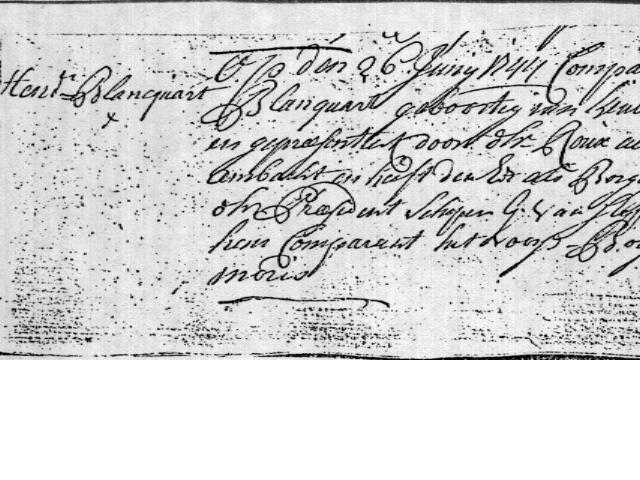 Hend.r Blanquart
Op den 26 Juny 1744 Compa
Blanquart geboortig van
en gepresenteert door d'hr Roux
ambacht en heeft den Ed als Borg
d'hr President Schepen G. van
hem Comparant het voors. Bor
moris